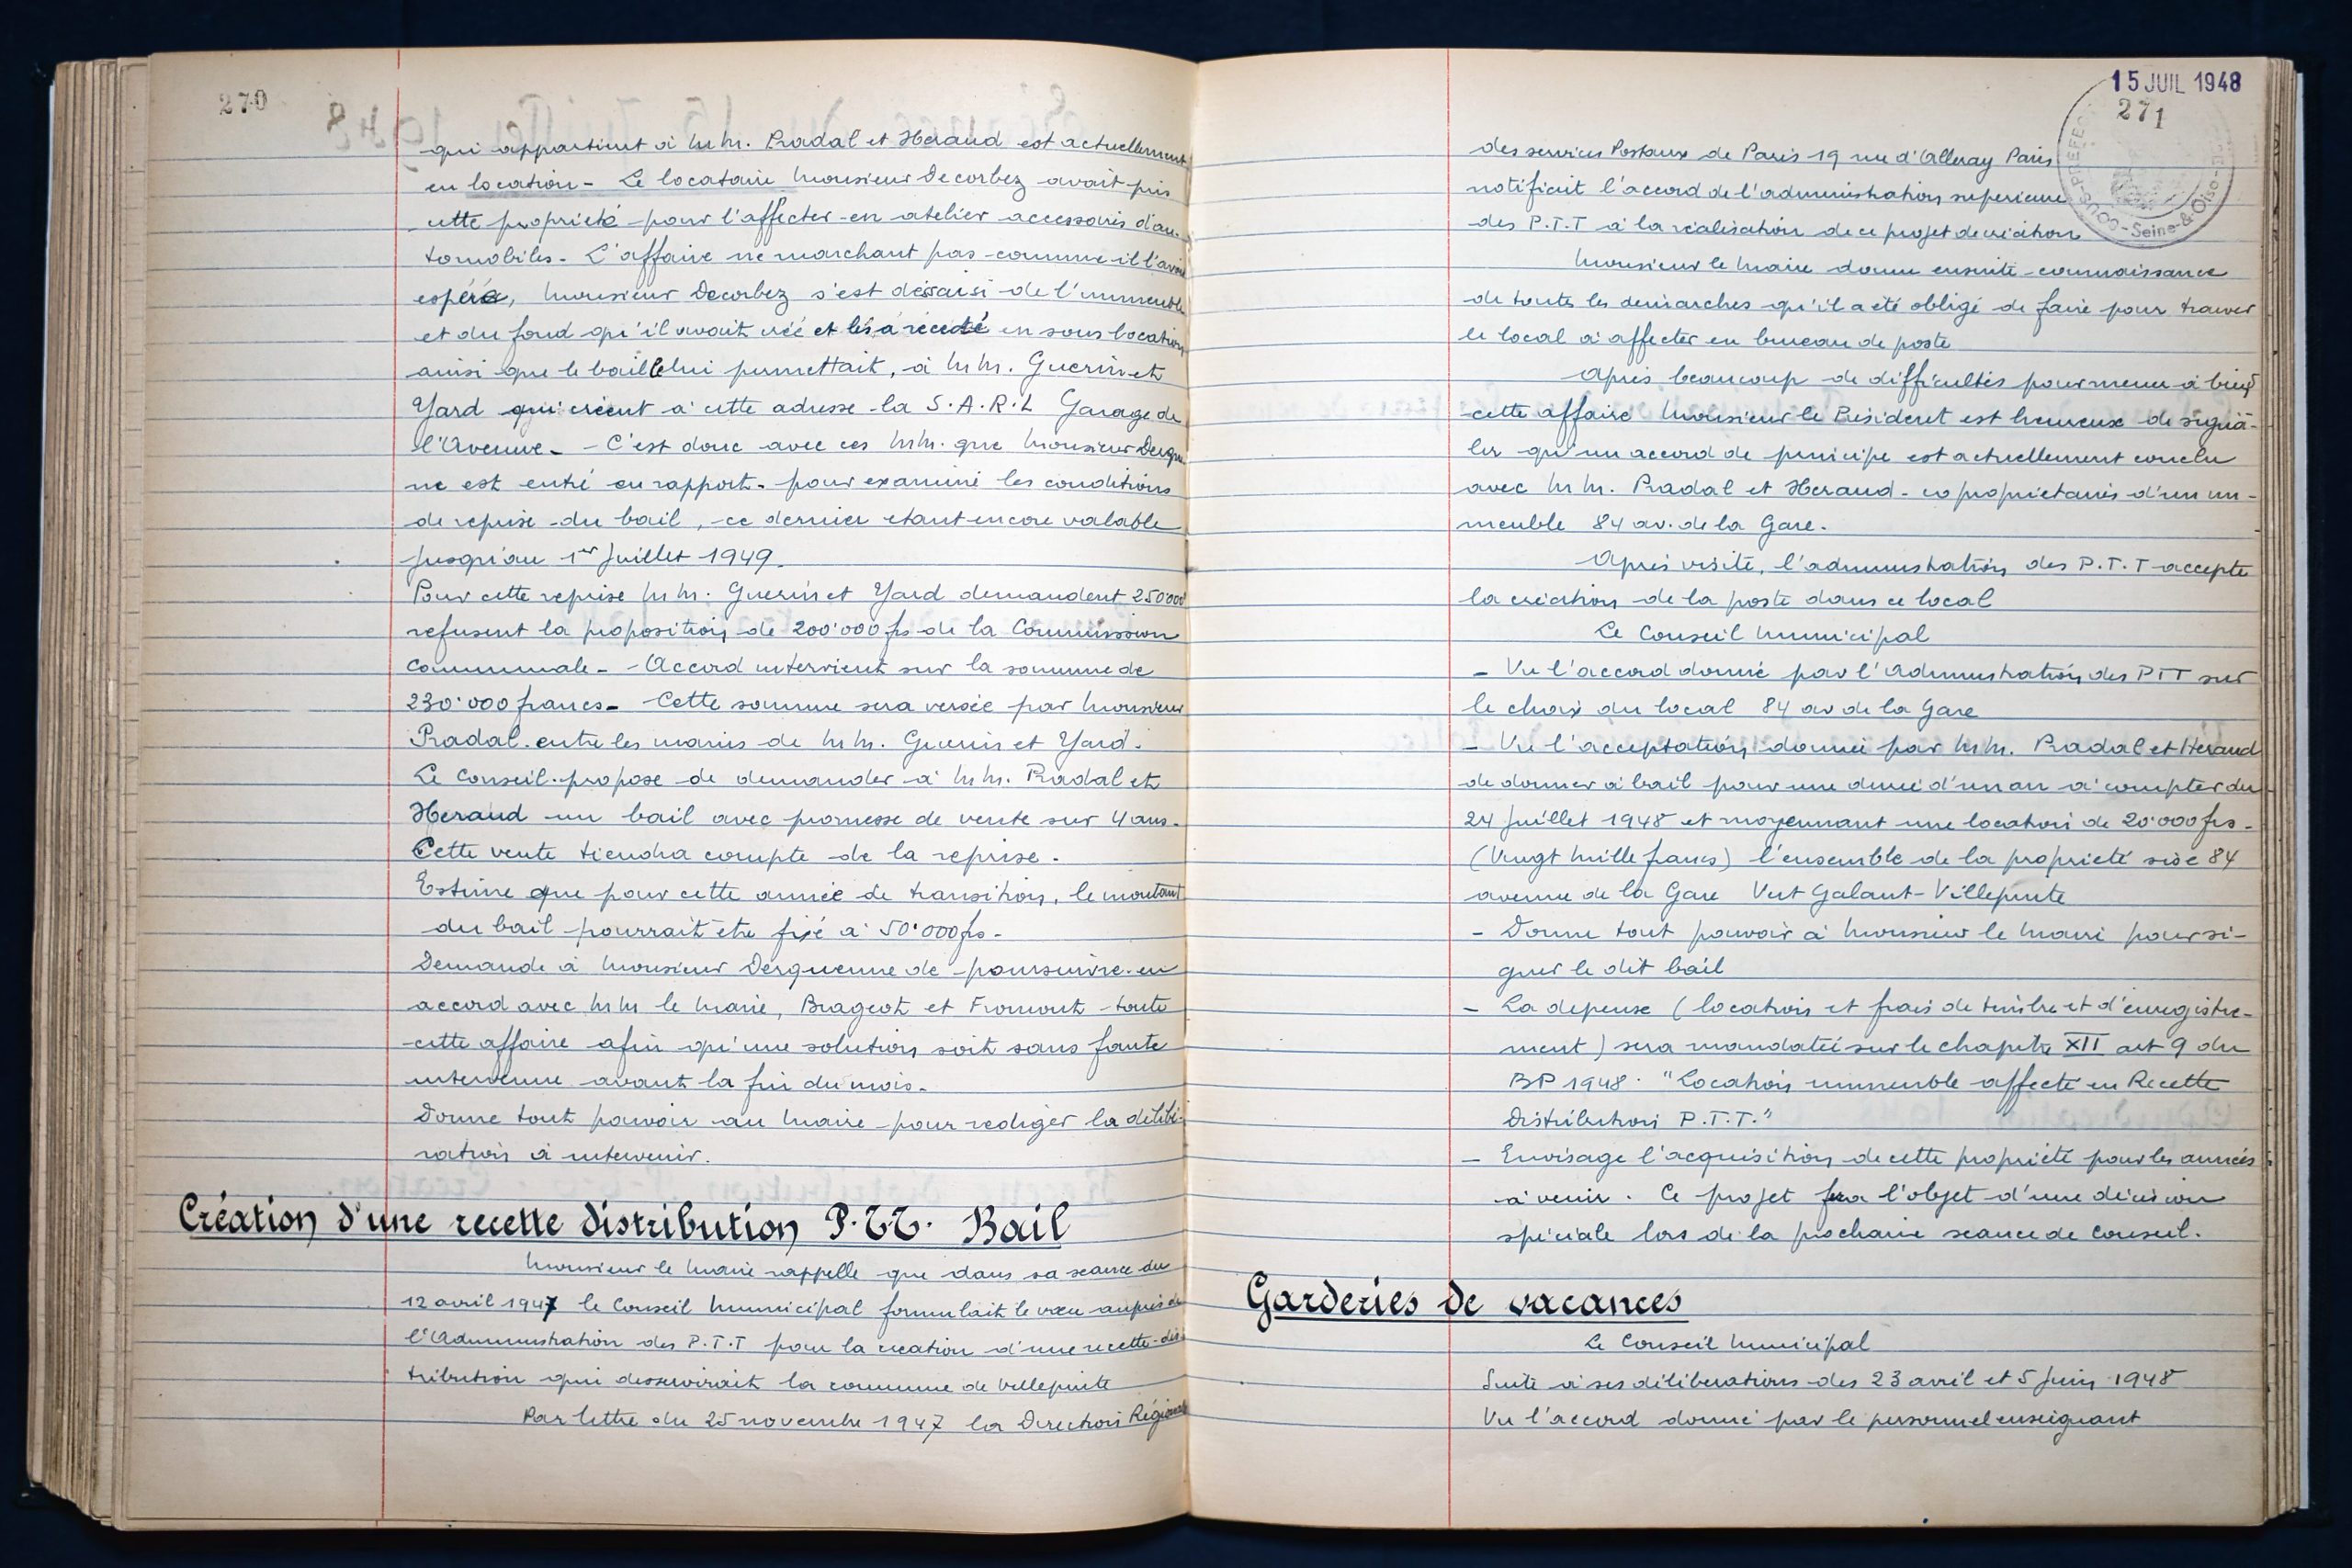 270
qui appartient à MM. Pradal et Heraud est actuellement
en location - Le locataire Monsieur Decorbez avait pris
cette propriété pour l'affecter en atelier accessoires d'au-
tomobiles - L'affaire ne marchant pas comme il l'avait
espéré, Monsieur Decorbez s'est déssaisi de l'immeuble
et du fond qu'il avait créé et les a récédé en sous location
ainsi que le bail le lui permettait, à MM. Guerin et
Yard qui créent à cette adresse la S.A.R.L Garage de
l'Avenue - - C'est donc avec ces MM. que Monsieur Derquen
ne est entré en rapport pour examiné les conditions
de reprise du bail, ce dernier étant encore valable
jusqu'au 1er Juillet 1949.
Pour cette reprise MM. Guerin et Yard demandent 250'000
refusent la proposition de 200'000 frs de la Commission
communale - - Accord intervient sur la somme de
230'000 francs - Cette somme sera versée par Monsieur
Pradal entre les mains de MM. Guerin et Yard.
Le Conseil propose de demander à MM. Pradal et
Heraud un bail avec promesse de vente sur 4 ans.
Cette vente tiendra compte de la reprise.
Estime que pour cette année de transition, le montant
du bail pourrait être fixé à 50'000 frs -
Demande à Monsieur Derquenne de poursuivre en
accord avec MM le Maire, Brageot et Fromont toute
cette affaire afin qu'une solution soit sans faute
intervenue avant la fin du mois.
Donne tout pouvoir au Maire pour rediger la délibé-
ration à intervenir.
Création d'une recette distribution P.T.T. Bail
Monsieur le Maire rappelle que dans sa seance du
12 avril 1947 le Conseil Municipal formulait le vœu auprès de
l'Administration des P.T.T pour la creation d'une recette-dis
tribution qui desservirait la commune de Villepinte
Par lettre du 25 novembre 1947 la Direction Régionale
15 JUIL 1948
271
SOUS-PREFEC
Seine-&-Oise
des services Postaux de Paris 19 rue d'Alleray Paris
notifiait l'accord de l'administration superieure
des P.T.T à la réalisation de ce projet de création
Monsieur le Maire donne ensuite connaissance
de toutes les demarches qu'il a été obligé de faire pour trouver
le local à affecter en bureau de poste
Après beaucoup de difficultés pour mener à bien
cette affaire Monsieur le Président est heureux de signa-
ler qu'un accord de principe est actuellement conclu
avec MM. Pradal et Heraud - coproprietaires d'un im-
meuble 84 av. de la Gare.
Après visite, l'administration des P.T.T accepte
la création de la poste dans ce local
Le Conseil Municipal
- Vu l'accord donné par l'Administration des PTT sur
le choix du local 84 av de la Gare
- Vu l'acceptation donnée par MM. Pradal et Heraud
de donner à bail pour une durée d'un an à compter du
24 Juillet 1948 et moyennant une location de 20'000 frs -
(Vingt Mille francs) l'ensemble de la propriété sise 84
avenue de la Gare Vert Galant - Villepinte
- Donne tout pouvoir à Monsieur le Maire pour si-
gner le dit bail
- La depense (location et frais de timbre et d'enregistre-
ment) sera mandatée sur le chapitre XII art 9 du
BP 1948. "Location immeuble affecté en Recette
Distribution P.T.T."
- Envisage l'acquisition de cette propriété pour les années
à venir. Ce projet fera l'objet d'une décision
spéciale lors de la prochaine seance de Conseil.
Garderies de vacances
Le Conseil Municipal
Suite à ses déliberations des 23 avril et 5 Juin 1948
Vu l'accord donné par le personnel enseignant